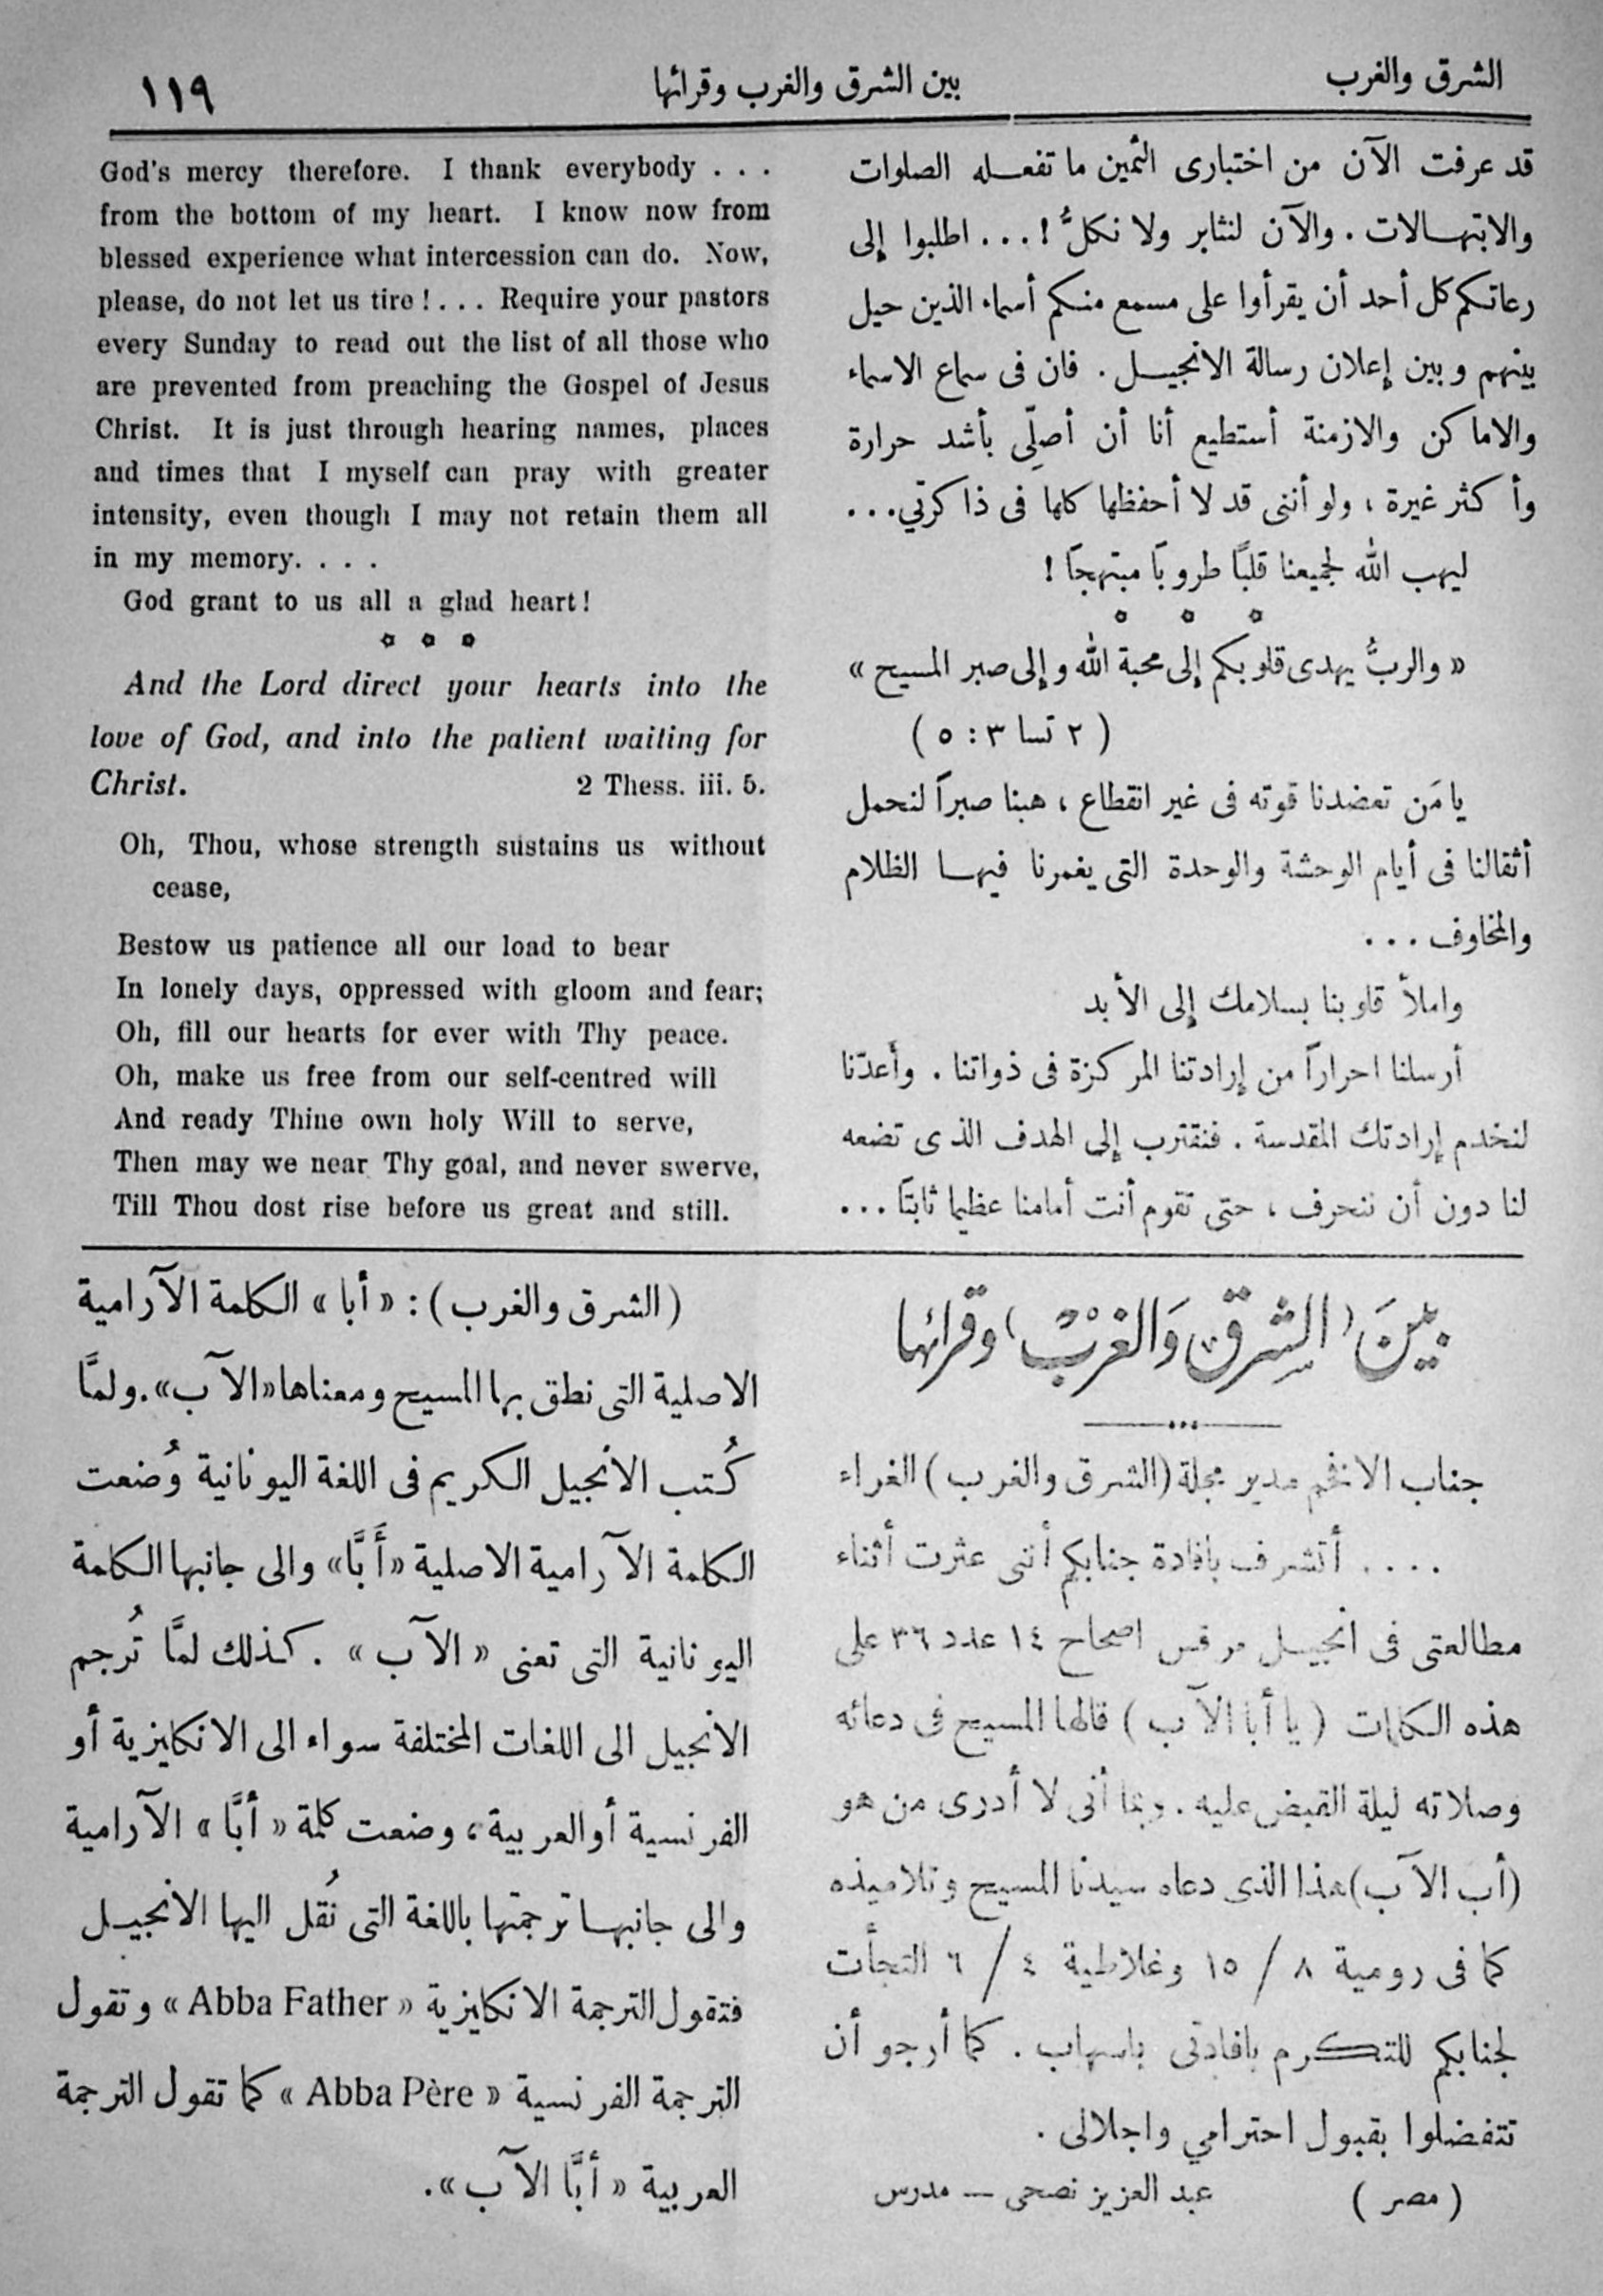 الشرق والغرب
بين الشرق والغرب وقرائها
١١٩
قد عرفت الآن من اختبارى الثمين ما تفعله الصلوات
والابتهالات . والآن لنثابر ولا نكلُّ ! ... اطلبوا إلى
رعاتكم كل أحد أن يقرأوا على مسمع منكم أسماء الذين حيل
بينهم وبين إعلان رسالة الانجيل . فان فى سماع الاسماء
والاماكن والازمنة أستطيع أنا أن أصلِّى بأشد حرارة
وأكثر غيرة ، ولو أننى قد لا أحفظها كلها فى ذاكرتي ...
ليهب الله لجميعنا قلبًا طروبًا مبتهجًا !
« والربُّ يهدى قلوبكم إلى محبة الله وإلى صبر المسيح »
( ٢ تسا ٣ : ٥ )
يا مَن تعضدنا قوته فى غير انقطاع ، هبنا صبراً لنحمل
أثقالنا فى أيام الوحشة والوحدة التى يغمرنا فيها الظلام
والمخاوف ...
واملأ قلوبنا بسلامك إلى الأبد
أرسلنا احراراً من إرادتنا المركزة فى ذواتنا . وأعدّنا
لنخدم إرادتك المقدسة . فنقترب إلى الهدف الذى تضعه
لنا دون أن ننحرف ، حتى تقوم أنت أمامنا عظيما ثابتًا ...
God's mercy therefore. I thank everybody . . .
from the bottom of my heart. I know now from
blessed experience what intercession can do. Now,
please, do not let us tire ! . . . Require your pastors
every Sunday to read out the list of all those who
are prevented from preaching the Gospel of Jesus
Christ. It is just through hearing names, places
and times that I myself can pray with greater
intensity, even though I may not retain them all
in my memory. . . .
God grant to us all a glad heart!
And the Lord direct your hearts into the
love of God, and into the patient waiting for
Christ. 2 Thess. iii. 5.
Oh, Thou, whose strength sustains us without
cease,
Bestow us patience all our load to bear
In lonely days, oppressed with gloom and fear;
Oh, fill our hearts for ever with Thy peace.
Oh, make us free from our self-centred will
And ready Thine own holy Will to serve,
Then may we near Thy goal, and never swerve,
Till Thou dost rise before us great and still.
بينَ (الشرق وَالغربْ) وقرائها
جناب الافخم مدير مجلة (الشرق والغرب) الغراء
.... أتشرف بافادة جنابكم أننى عثرت أثناء
مطالعتى فى انجيل مرقس اصحاح ١٤ عدد ٣٦ على
هذه الكلمات ( يا أبا الآب ) قالها المسيح فى دعائه
وصلاته ليلة القبض عليه . وبما أنى لا أدرى من هو
(أب الآب) هذا الذى دعاه سيدنا المسيح وتلاميذه
كما فى رومية ٨ / ١٥ وغلاطية ٤ / ٦ التجأت
لجنابكم للتكرم بافادتى باسهاب . كما أرجو أن
تتفضلوا بقبول احترامي واجلالى .
( مصر ) عبد العزيز نصحى — مدرس
(الشرق والغرب) : « أبا » الكلمة الآرامية
الاصلية التى نطق بها المسيح ومعناها «الآب» . ولمَّا
كُتب الانجيل الكريم فى اللغة اليونانية وُضعت
الكلمة الآرامية الاصلية «أَبَّا» والى جانبها الكلمة
اليونانية التى تعنى « الآب » . كذلك لمَّا تُرجم
الانجيل الى اللغات المختلفة سواء الى الانكليزية أو
الفرنسية أو العربية ، وضعت كلمة « أبَّا » الآرامية
والى جانبها ترجمتها باللغة التى نُقل اليها الانجيل
فتقول الترجمة الانكليزية « Abba Father » وتقول
الترجمة الفرنسية « Abba Père » كما تقول الترجمة
العربية « أبَّا الآب » .